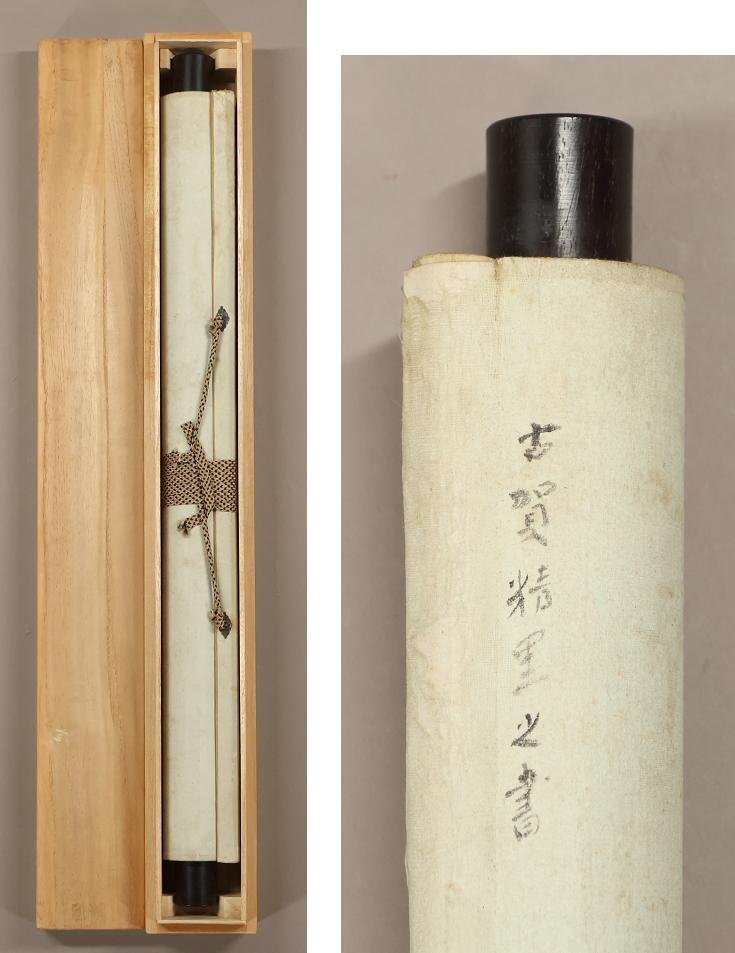 古賀精里之書